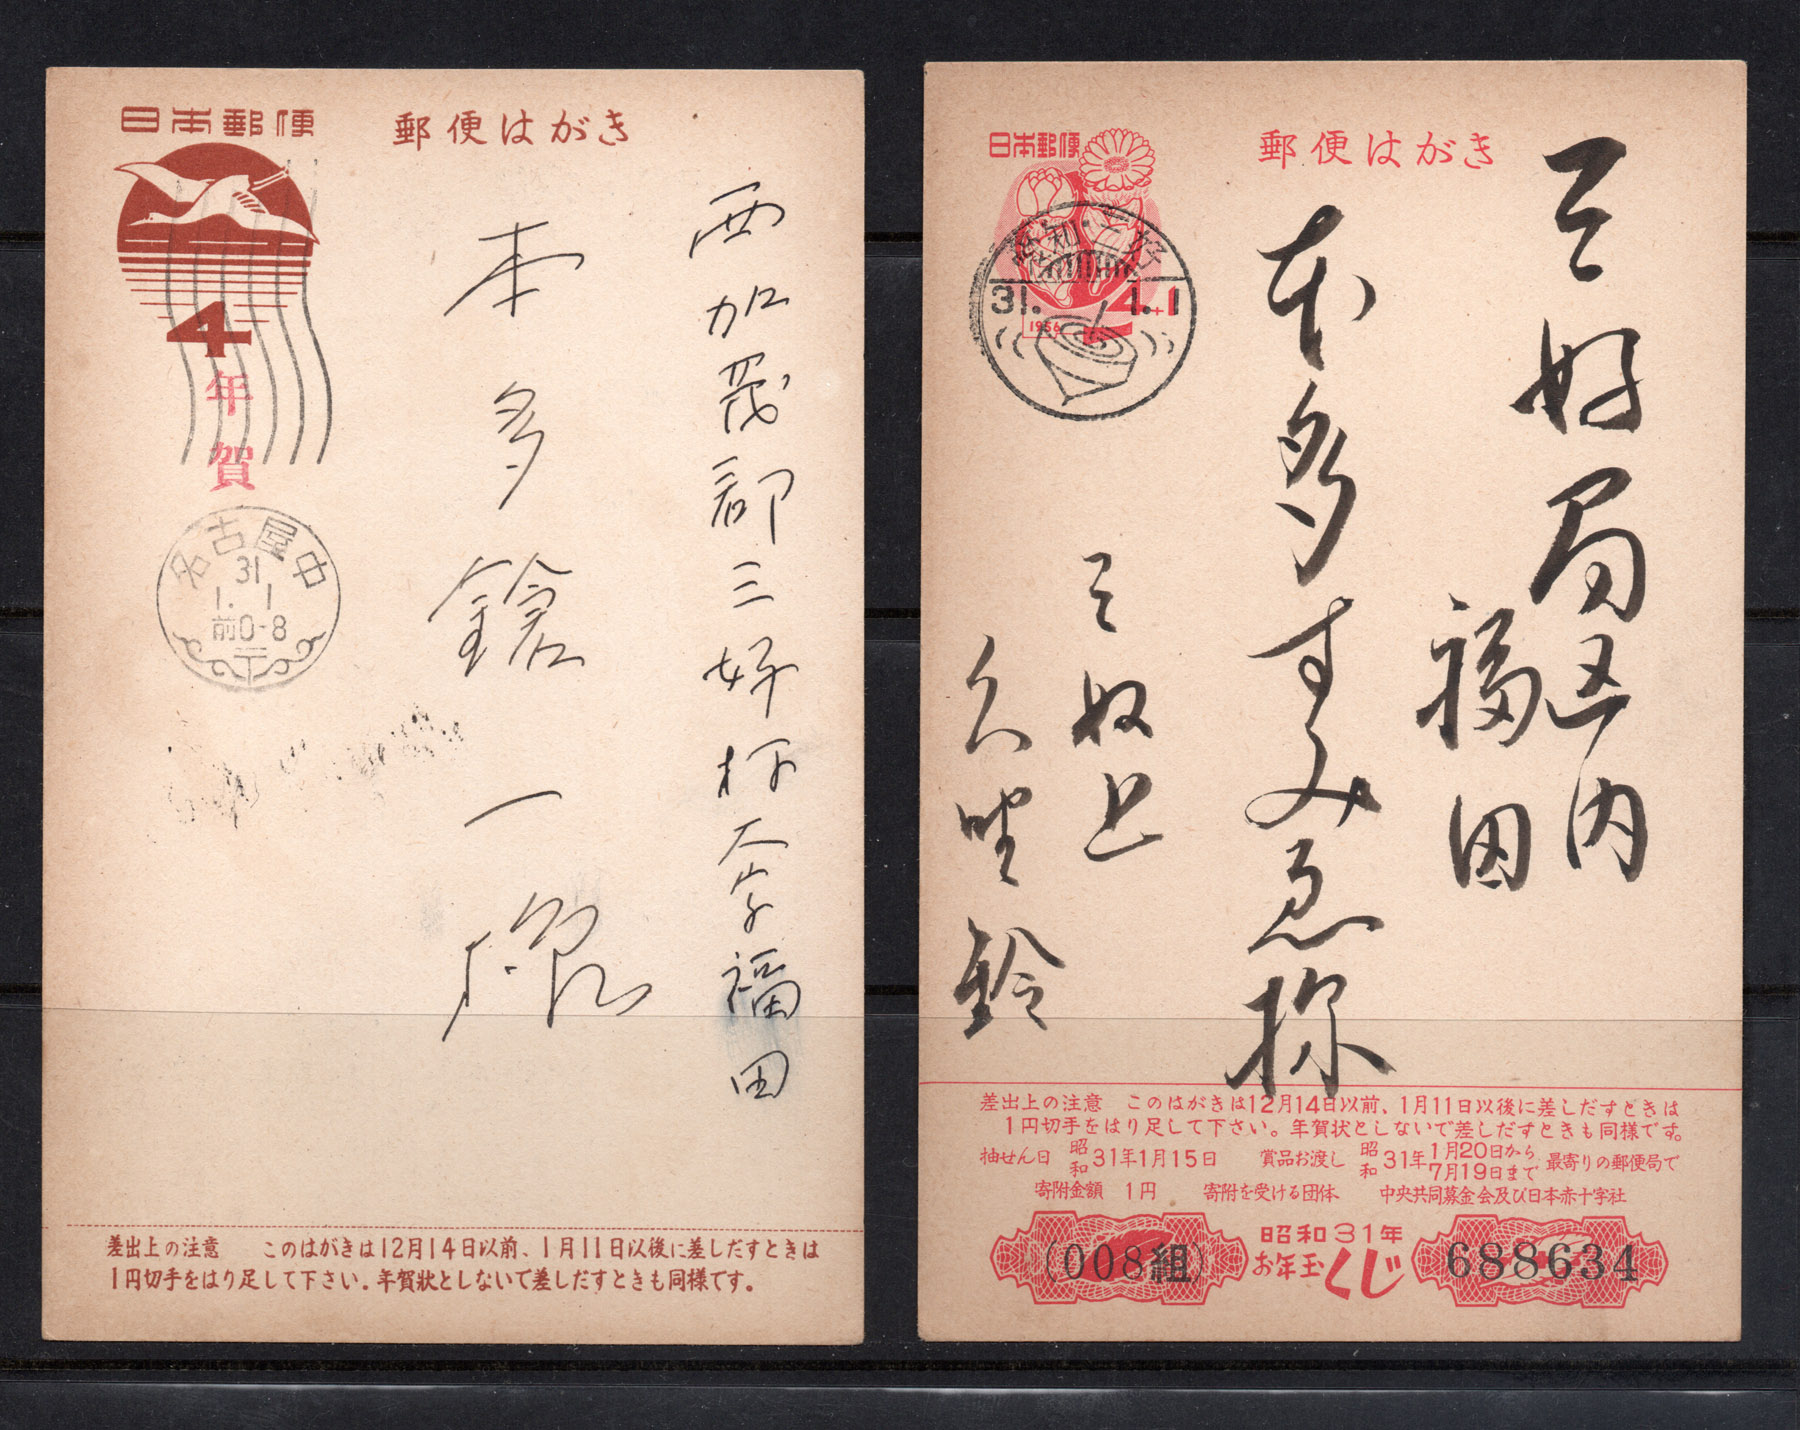 日本郵便
郵便はがき
4
年賀
名古屋中
31.
1. 1
前0-8
西加茂郡三好村大字福田
本多鎗一様
差出上の注意 このはがきは12月14日以前、1月11日以後に差しだすときは
1円切手をはり足して下さい。年賀状としないで差しだすときも同様です。
日本郵便
郵便はがき
愛知・三好
31. 1.1
4+1
1956
三好局区内
福田
本多すみゑ様
三好上
久野鈴
差出上の注意 このはがきは12月14日以前、1月11日以後に差しだすときは
1円切手をはり足して下さい。年賀状としないで差しだすときも同様です。
抽せん日 昭和31年1月15日 賞品お渡し 昭和31年1月20日から7月19日まで 最寄りの郵便局で
寄附金額 1円 寄附を受ける団体 中央共同募金会及び日本赤十字社
(008組)
昭和31年
お年玉くじ
688634